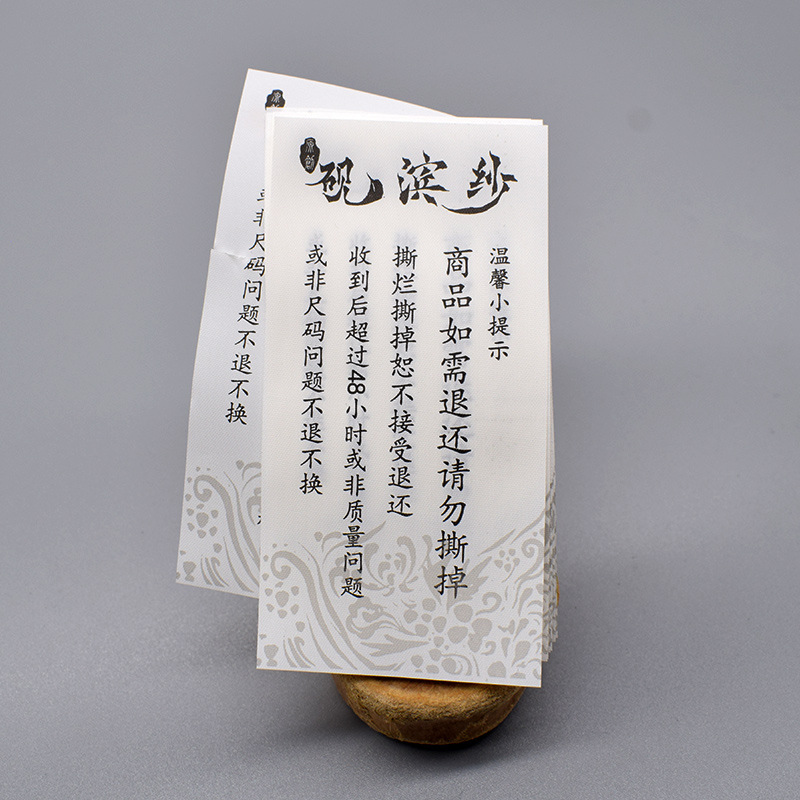 原创
砚滨纱
温馨小提示
商品如需退还请勿撕掉
撕烂撕掉恕不接受退还
收到后超过48小时或非质量问题
或非尺码问题不退不换
或非尺码问题不退不换